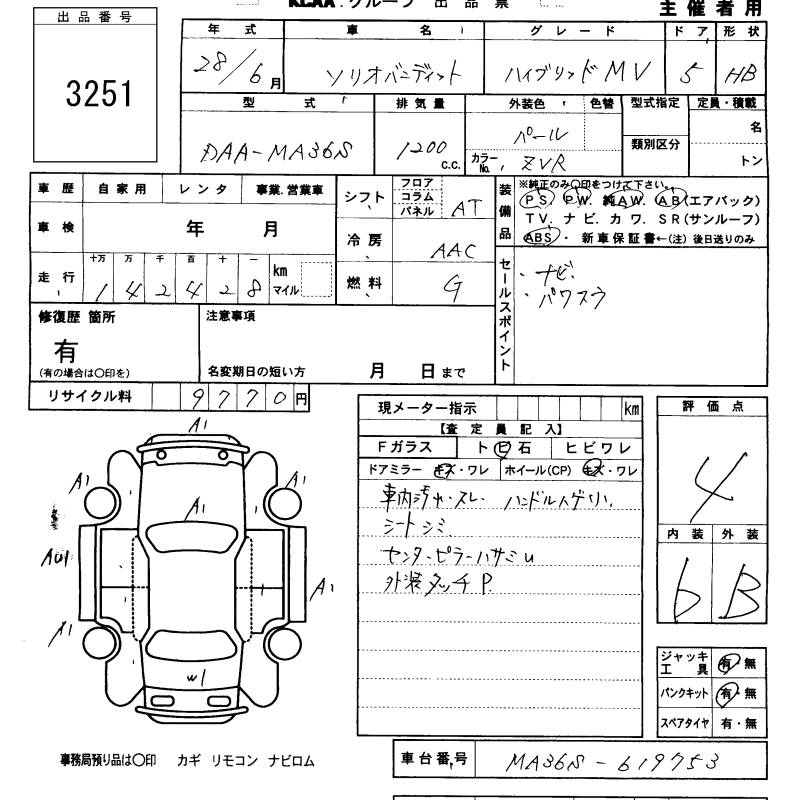 KCAA グループ 出品票
主催者用
出品番号
3251
年式 車名 グレード ドア 形状
28/6月 ソリオバンディット ハイブリッドMV 5 HB
型式 排気量 外装色 色替 型式指定 定員・積載
DAA-MA36S 1200 c.c. パール 名
類別区分
カラーNo. ZVR トン
車歴 自家用 レンタ 事業.営業車
車検 年 月
走行 十万 万 千 百 十 一 km マイル
1 4 2 4 2 8
シフト フロア コラム パネル AT
冷房 AAC
燃料 G
装備品
※純正のみ〇印をつけて下さい。
PS. PW. 純AW. AB(エアバック)
TV. ナビ. カワ. SR(サンルーフ)
ABS. 新車保証書←(注)後日送りのみ
セールスポイント
・ナビ
・パワスラ
修復歴 箇所
有
(有の場合は〇印を)
注意事項
名変期日の短い方 月 日まで
リサイクル料 9770円
現メーター指示 km
【査定員記入】
Fガラス ト㊐石 ヒビワレ
ドアミラー キズ・ワレ ホイール(CP) キズ・ワレ
車内汚れ・スレ ハンドルハゲ小
シートシミ
センターピラーハサミU
外装タッチP.
評価点
4
内装 外装
b B
ジャッキ工具 有・無
パンクキット 有・無
スペアタイヤ 有・無
A1
A1 A1
A1
AU1 A1
A1
W1
事務局預り品は〇印 カギ リモコン ナビロム
車台番号 MA36S-619753